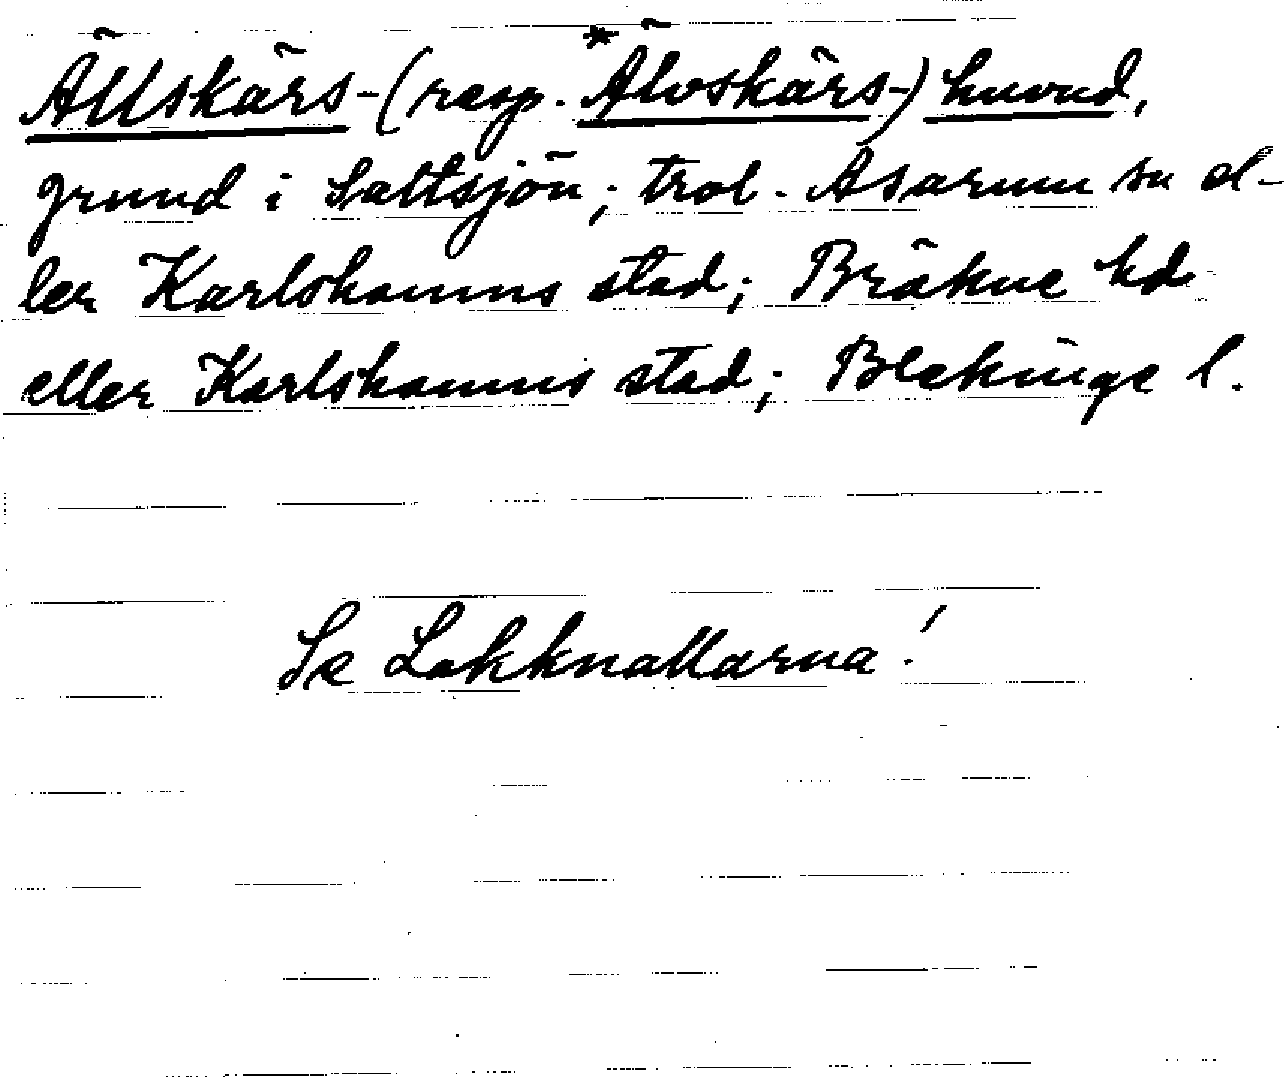 Ällskärs-(resp. *Älvskärs-)huvud,
grund i Saltsjön; trol. Asarum sn el-
ler Karlshamns stad; Bräkne hd
eller Karlshamns stad; Blekinge l.
Se Lakknallarna!